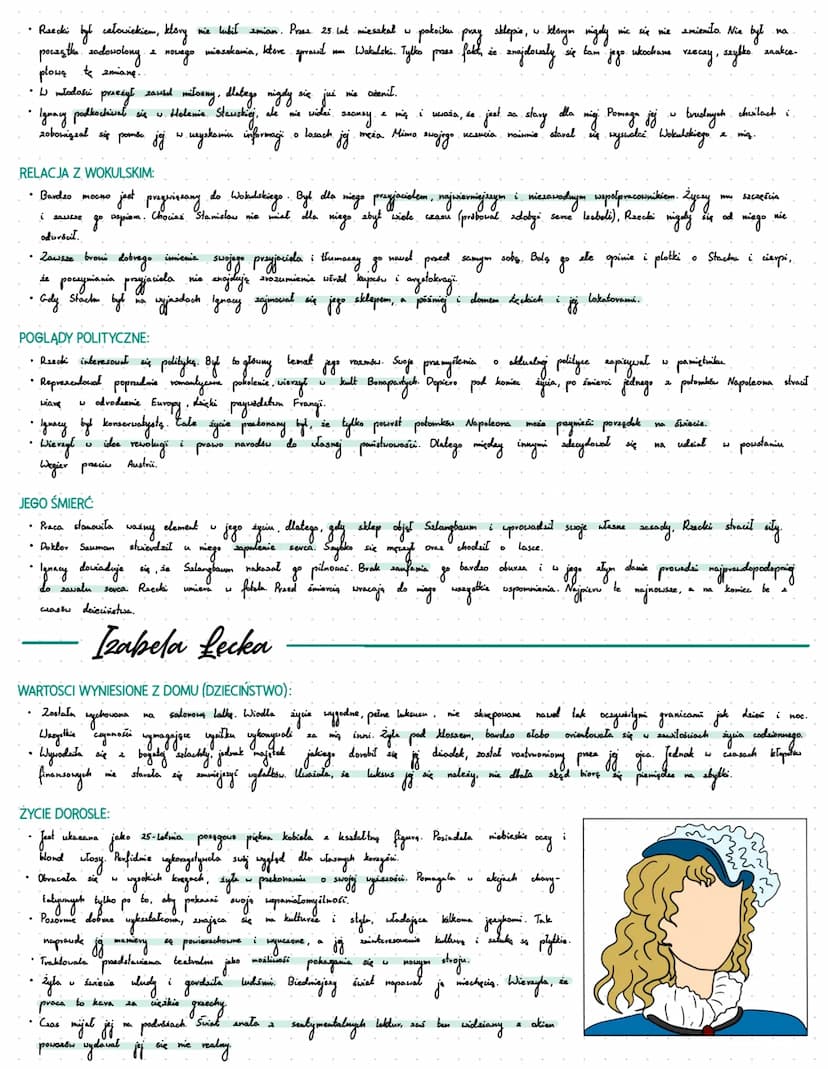 • Rzecki był człowiekiem, który nie lubił zmian. Przez 25 lat mieszkał w pokoiku przy sklepie, w którym nigdy nic się nie zmieniło. Nie był na
początku zadowolony z nowego mieszkania, które sprawił mu Wokulski. Tylko przez fakt, że znajdowały się tam jego ukochane rzeczy, szybko zaakce-
ptował tę zmianę.
• W młodości przeżył zawód miłosny, dlatego nigdy się już nie ożenił.
• Ignacy podkochiwał się w Helenie Stawskiej, ale nie widzi szansy z nią i uważa, że jest za stary dla niej. Pomaga jej w trudnych chwilach i
zobowiązał się pomóc jej w uzyskaniu informacji o losach jej męża. Mimo swojego uczucia naiwnie starał się wyswatać Wokulskiego z nią.
RELACJA Z WOKULSKIM:
• Bardzo mocno jest przywiązany do Wokulskiego. Był dla niego przyjacielem, najwierniejszym i niezawodnym współpracownikiem. Życzy mu szczęścia
i zawsze go wspiera. Chociaż Stanisław nie miał dla niego zbyt wiele czasu (próbował zdobyć serce Izabeli), Rzecki nigdy się od niego nie
odwrócił.
• Zawsze broni dobrego imienia swojego przyjaciela i tłumaczy go nawet przed samym sobą. Bolą go złe opinie i plotki o Stachu i cierpi,
że poczynania przyjaciela nie znajdują zrozumienia wśród kupców i arystokracji.
• Gdy Stachu był na wyjazdach Ignacy zajmował się jego sklepem, a później i domem Łęckich i jej lokatorami.
POGLĄDY POLITYCZNE:
• Rzecki interesował się polityką. Był to główny temat jego rozmów. Swoje przemyślenia o aktualnej polityce zapisywał w pamiętniku.
• Reprezentował poprzednie romantyczne pokolenie, wierzył w kult Bonapartych. Dopiero pod koniec życia, po śmierci jednego z potomków Napoleona stracił
wiarę w odrodzenie Europy, dzięki przywództwu Francji.
• Ignacy był konserwatystą. Całe życie przekonany był, że tylko powrót potomków Napoleona może przynieść porządek na świecie.
• Wierzył w idee rewolucji i prawo narodów do własnej państwowości. Dlatego między innymi zdecydował się na udział w powstaniu
Węgier przeciw Austrii.
JEGO ŚMIERĆ:
• Praca stanowiła ważny element w jego życiu, dlatego, gdy sklep objął Szlangbaum i wprowadził swoje własne zasady, Rzecki stracił siły.
• Doktor Szuman stwierdził u niego zapalenie serca. Szybko się męczył oraz chodził o lasce.
• Ignacy dowiaduje się, że Szlangbaum nakazał go pilnować. Brak zaufania go bardzo oburza i w jego złym stanie prowadzi najprawdopodobniej
do zawału serca. Rzecki umiera w fotelu. Przed śmiercią wracają do niego wszystkie wspomnienia. Najpierw te najnowsze, a na koniec te z
czasów dzieciństwa.
Izabela Łęcka
WARTOSCI WYNIESIONE Z DOMU (DZIECIŃSTWO):
• Została wychowana na salonową lalkę. Wiodła życie wygodne, pełne luksusu, nie skrępowane nawet tak oczywistymi granicami jak dzień i noc.
Wszystkie czynności wymagające wysiłku wykonywali za nią inni. Żyła pod kloszem, bardzo słabo orientowała się w zawiłościach życia codziennego.
• Wywodziła się z bogatej szlachty, jednak majątek jakiego dorobił się jej dziadek, został roztrwoniony przez jej ojca. Jednak w czasach kłopotów
finansowych nie starała się zmniejszyć wydatków. Uważała, że luksus jej się należy, nie dbała skąd biorą się pieniądze na zbytki.
ŻYCIE DOROSŁE:
• Jest ukazana jako 25-letnia posągowo piękna kobieta z kształtną figurą. Posiadała niebieskie oczy i
blond włosy. Perfidnie wykorzystywała swój wygląd dla własnych korzyści.
• Obracała się w wysokich kręgach, żyła w przekonaniu o swojej wyższości. Pomagała w akcjach chary-
tatywnych tylko po to, aby pokazać swoją wspaniałomyślność.
• Pozornie dobrze wykształcona, znająca się na kulturze i stylu, władająca kilkoma językami. Tak
naprawdę jej maniery są powierzchowne i wyuczone, a jej zainteresowanie kulturą i sztuką są płytkie.
• Traktowała przedstawienia teatralne jako możliwość pokazania się w nowym stroju.
• Żyła w świecie ułudy i gardziła ludźmi. Biedniejszy świat napawał ją niechęcią. Wierzyła, że
praca to kara za ciężkie grzechy.
• Czas mijał jej na podróżach. Świat znała z sentymentalnych lektur, zaś ten widziany z okien
powozów wydawał jej się nie realny.